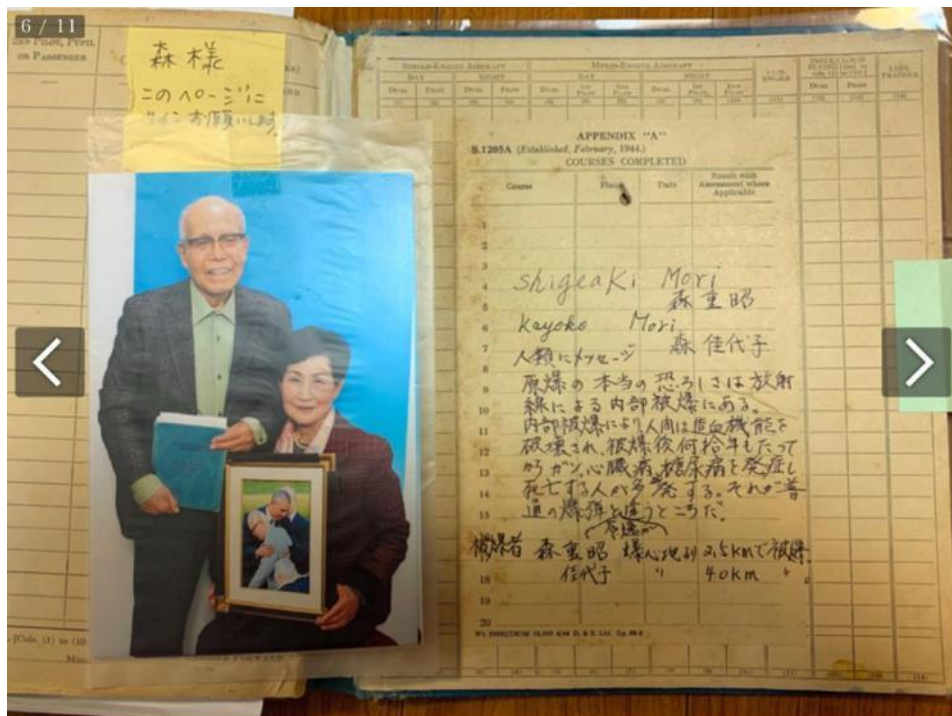 6 / 11
OR PASSENGER
森 様
このページに
サインお願いします
SINGLE-ENGINE AIRCRAFT
MULTI-ENGINE AIRCRAFT
DAY
NIGHT
DAY
NIGHT
DUAL
PILOT
DUAL
PILOT
DUAL
DUAL
DUAL
PILOT
APPENDIX "A"
S.1205A (Established, February, 1944.)
COURSES COMPLETED
Course
Place
Date
Result with
Assessment where
Applicable
1
2
3
4
5
6
7
8
9
10
11
12
13
14
15
18
19
20
Shigeaki Mori
森重昭
Kayoko Mori
森 佳代子
人類にメッセージ
原爆の本当の恐ろしさは放射
線による内部被爆にある。
内部被爆により人間は造血機能を
破壊され、被爆後何拾年もたって
からガン、心臓病、糖尿病を発症し
死亡する人が多発する。それが普
通の爆弾と違うところだ。
被爆者 森重昭 爆心地より2.5kmで被爆
佳代子 〃 4.0km 〃
FORWARD